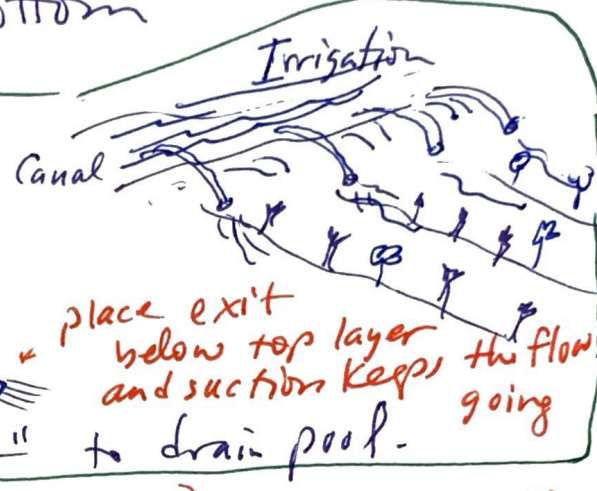 ottom
Irrigation
Canal
place exit
below top layer
and suction keeps the flow
going
" to drain pool.